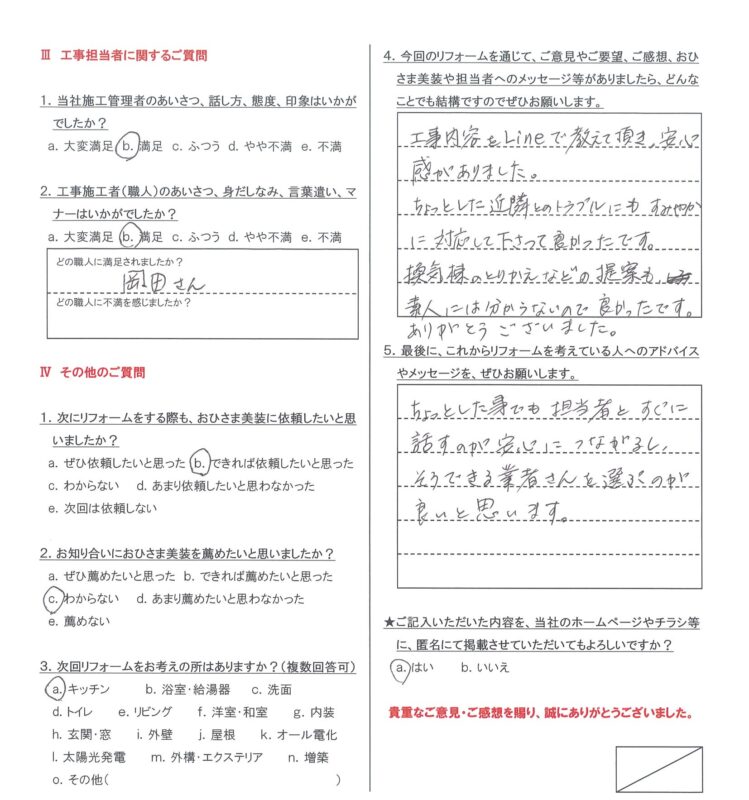 Ⅲ 工事担当者に関するご質問
1. 当社施工管理者のあいさつ、話し方、態度、印象はいかが
でしたか？
a. 大変満足 b. 満足 c. ふつう d. やや不満 e. 不満
2. 工事施工者（職人）のあいさつ、身だしなみ、言葉遣い、マ
ナーはいかがでしたか？
a. 大変満足 b. 満足 c. ふつう d. やや不満 e. 不満
どの職人に満足されましたか？
岡田さん
どの職人に不満を感じましたか？
Ⅳ その他のご質問
1. 次にリフォームをする際も、おひさま美装に依頼したいと思
いましたか？
a. ぜひ依頼したいと思った b. できれば依頼したいと思った
c. わからない d. あまり依頼したいと思わなかった
e. 次回は依頼しない
2. お知り合いにおひさま美装を薦めたいと思いましたか？
a. ぜひ薦めたいと思った b. できれば薦めたいと思った
c. わからない d. あまり薦めたいと思わなかった
e. 薦めない
3. 次回リフォームをお考えの所はありますか？（複数回答可）
a. キッチン b. 浴室・給湯器 c. 洗面
d. トイレ e. リビング f. 洋室・和室 g. 内装
h. 玄関・窓 i. 外壁 j. 屋根 k. オール電化
l. 太陽光発電 m. 外構・エクステリア n. 増築
o. その他（ ）
4. 今回のリフォームを通じて、ご意見やご要望、ご感想、おひ
さま美装や担当者へのメッセージ等がありましたら、どんな
ことでも結構ですのでぜひお願いします。
工事内容をLineで教えて頂き、安心
感がありました。
ちょっとした近隣とのトラブルにもすみやか
に対応して下さって良かったです。
換気棟のとりかえなどの提案も
素人には分からないので良かったです。
ありがとうございました。
5. 最後に、これからリフォームを考えている人へのアドバイス
やメッセージを、ぜひお願いします。
ちょっとした事でも担当者とすぐに
話すのが安心につながるし、
そうできる業者さんを選ぶのが
良いと思います。
★ご記入いただいた内容を、当社のホームページやチラシ等
に、匿名にて掲載させていただいてもよろしいですか？
a. はい b. いいえ
貴重なご意見・ご感想を賜り、誠にありがとうございました。